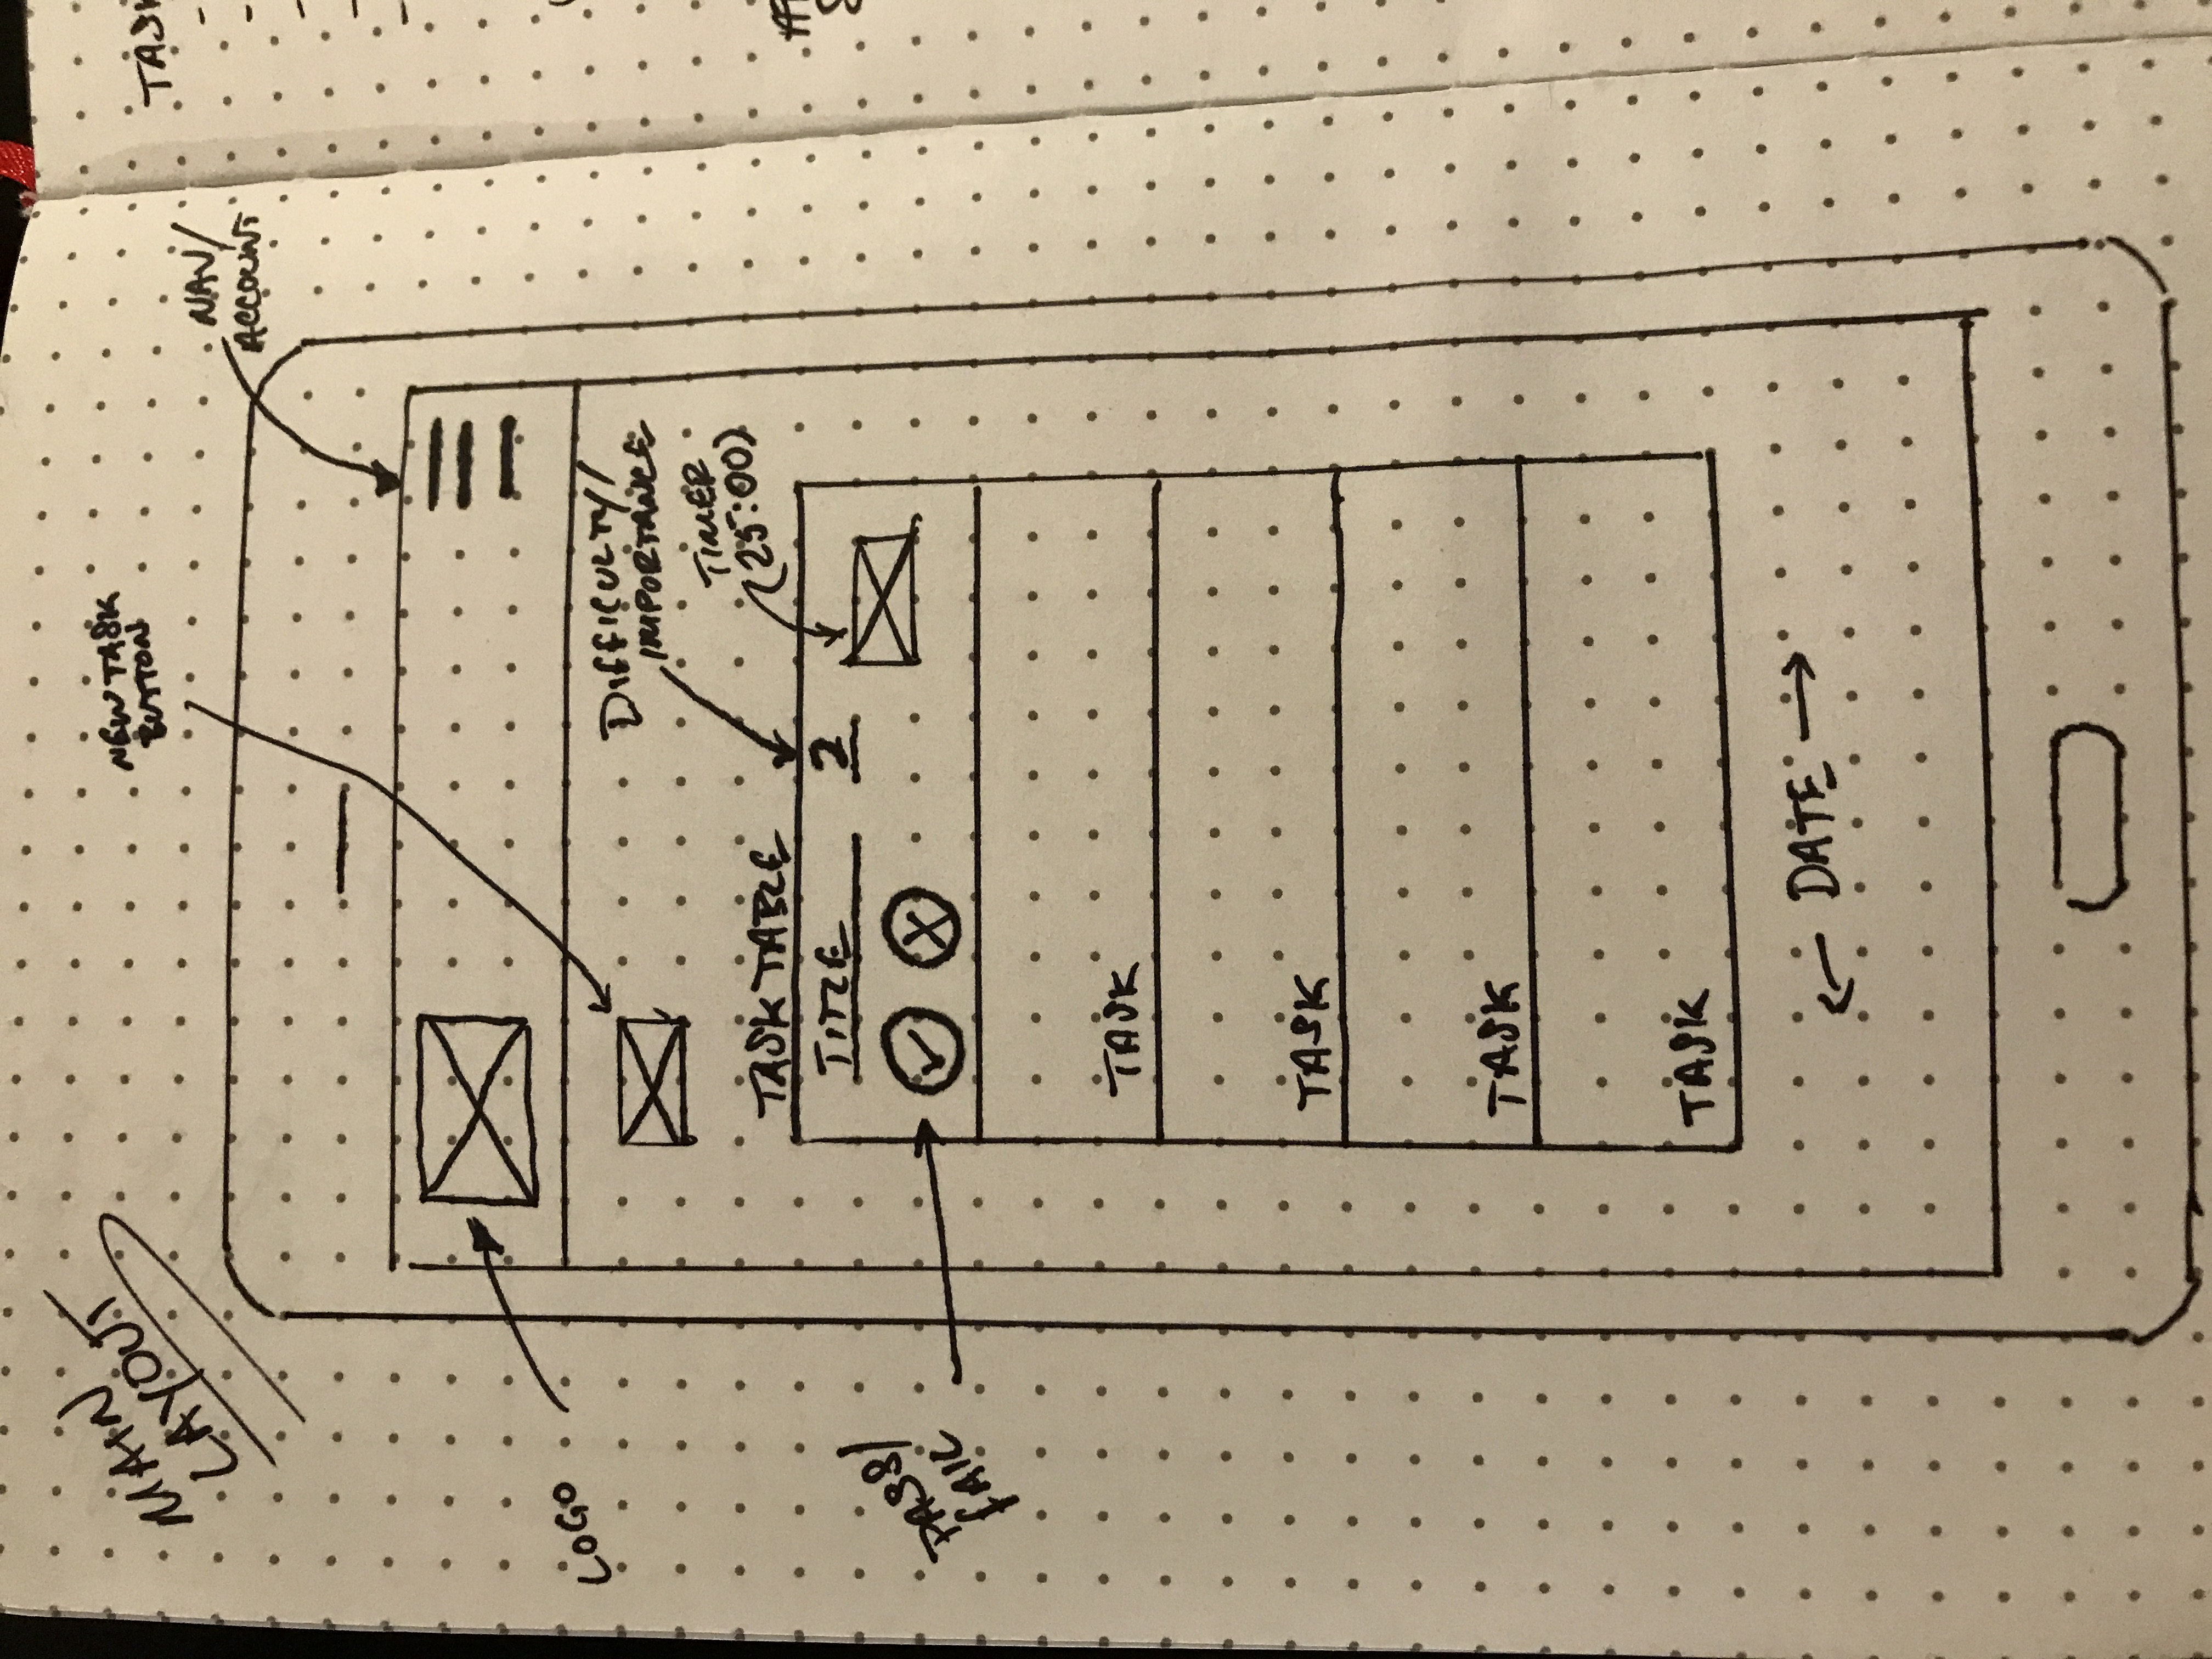 MAIN
LAYOUT
NEW TASK
BUTTON
NAV/
ACCOUNT
LOGO
DIFFICULTY/
IMPORTANCE
TIMER
(25:00)
TASK TABLE
TITLE
2
PASS/
FAIL
TASK
TASK
TASK
TASK
← DATE →
TASK